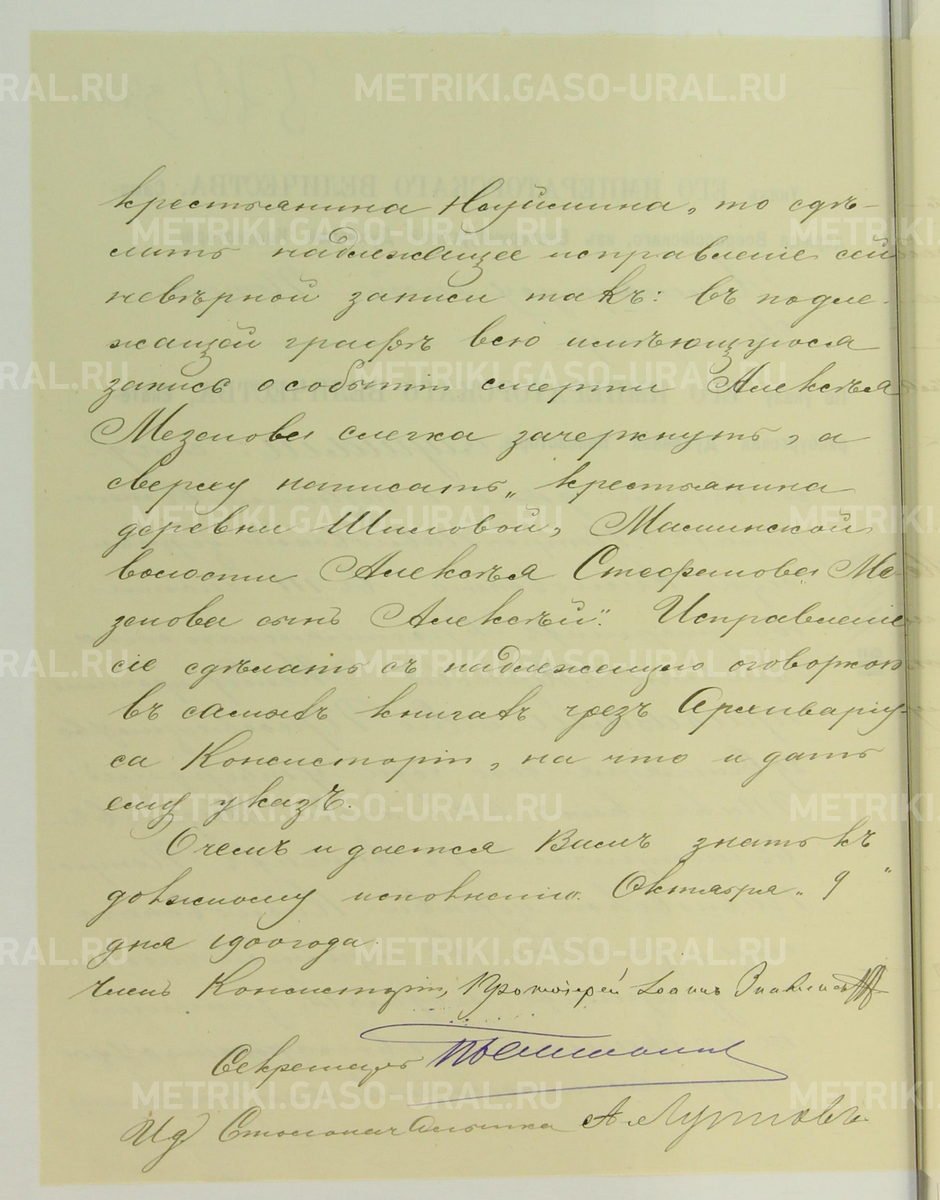 крестьянина Наймушина, то сдѣ-
лать надлежащее исправленіе сей
невѣрной записи такъ: въ подле-
жащей графѣ всю имѣющуюся
запись о событіи смерти Алексѣя
Мезенова слегка зачеркнуть, а
сверху написать „крестьянина
деревни Шиловой, Маминской
волости Алексѣя Стефанова Ме-
зенова сынъ Алексѣй". Исправленіе
сіе сдѣлать съ надлежащею оговоркою
въ самыхъ книгахъ чрезъ Архиваріу-
са Консисторіи, на что и дать
ему указъ.
О чемъ и дается Вамъ знать къ
должному исполненію. Октября „9"
дня 1900 года.
Членъ Консисторіи, Протоіерей Іоаннъ
Секретарь
Ид Столоначальника А.
METRIKI.GASO-URAL.RU